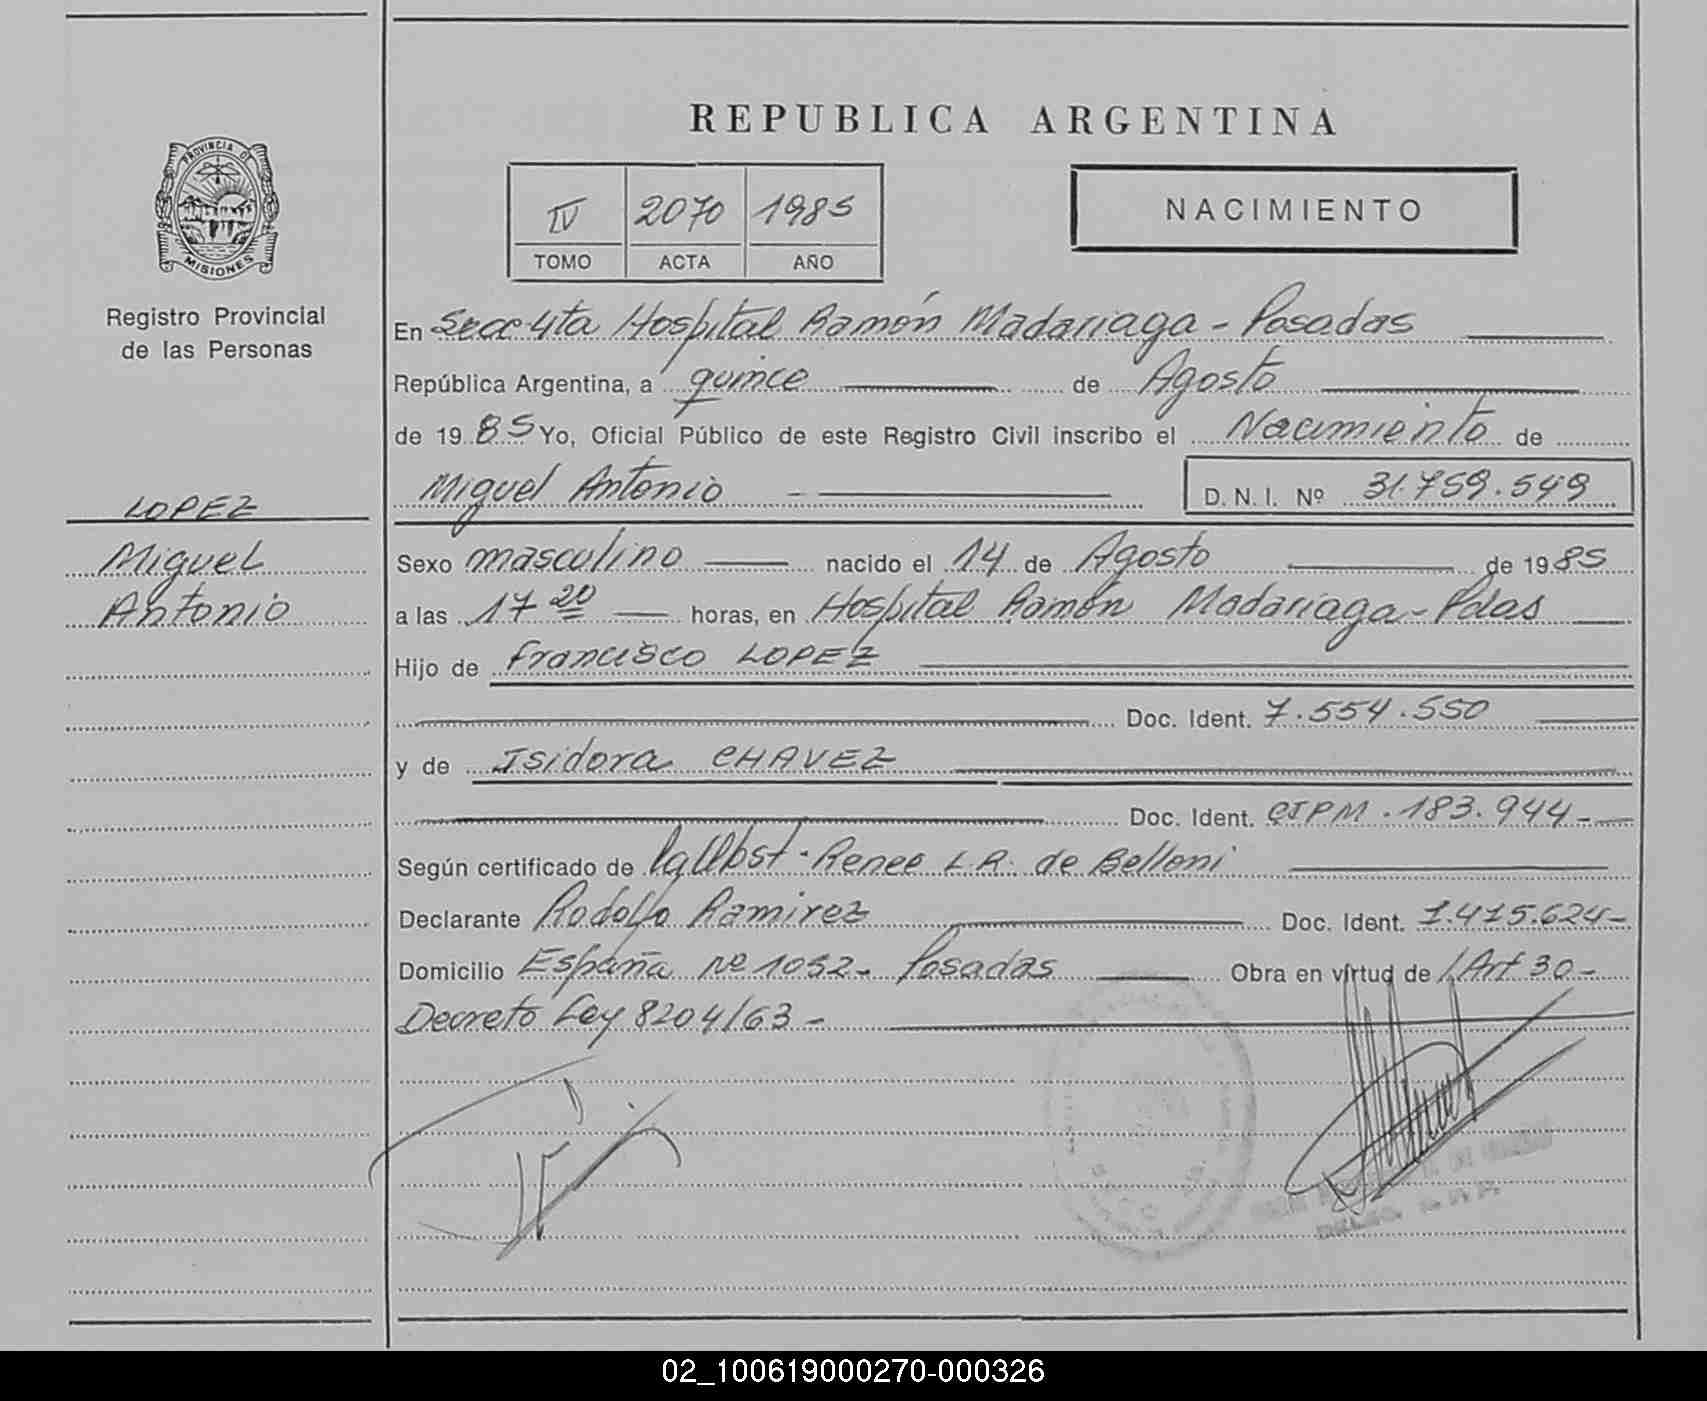 REPUBLICA ARGENTINA
PROVINCIA DE
MISIONES
Registro Provincial
de las Personas
IV 2070 1985
TOMO ACTA AÑO
NACIMIENTO
En Secc 4ta Hospital Ramón Madariaga - Posadas
República Argentina, a quince de Agosto
de 1985 Yo, Oficial Público de este Registro Civil inscribo el Nacimiento de
Miguel Antonio D. N. I. Nº 31.759.549
LOPEZ
Miguel
Antonio
Sexo masculino nacido el 14 de Agosto de 1985
a las 17 20 horas, en Hospital Ramón Madariaga - Pdas
Hijo de Francisco LOPEZ
Doc. Ident. 7.554.550
y de Isidora CHAVEZ
Doc. Ident. CIPM. 183.944-
Según certificado de Renee L.R. de Belloni
Declarante Rodolfo Ramirez Doc. Ident. 1.415.624-
Domicilio España Nº 1052- Posadas Obra en virtud de Art 30-
Decreto Ley 8204/63-
02_100619000270-000326